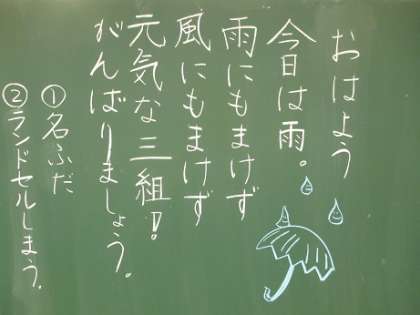 おはよう
今日は雨。
雨にもまけず
風にもまけず
元気な三組!
がんばりましょう。
①名ふだ
②ランドセルしまう。